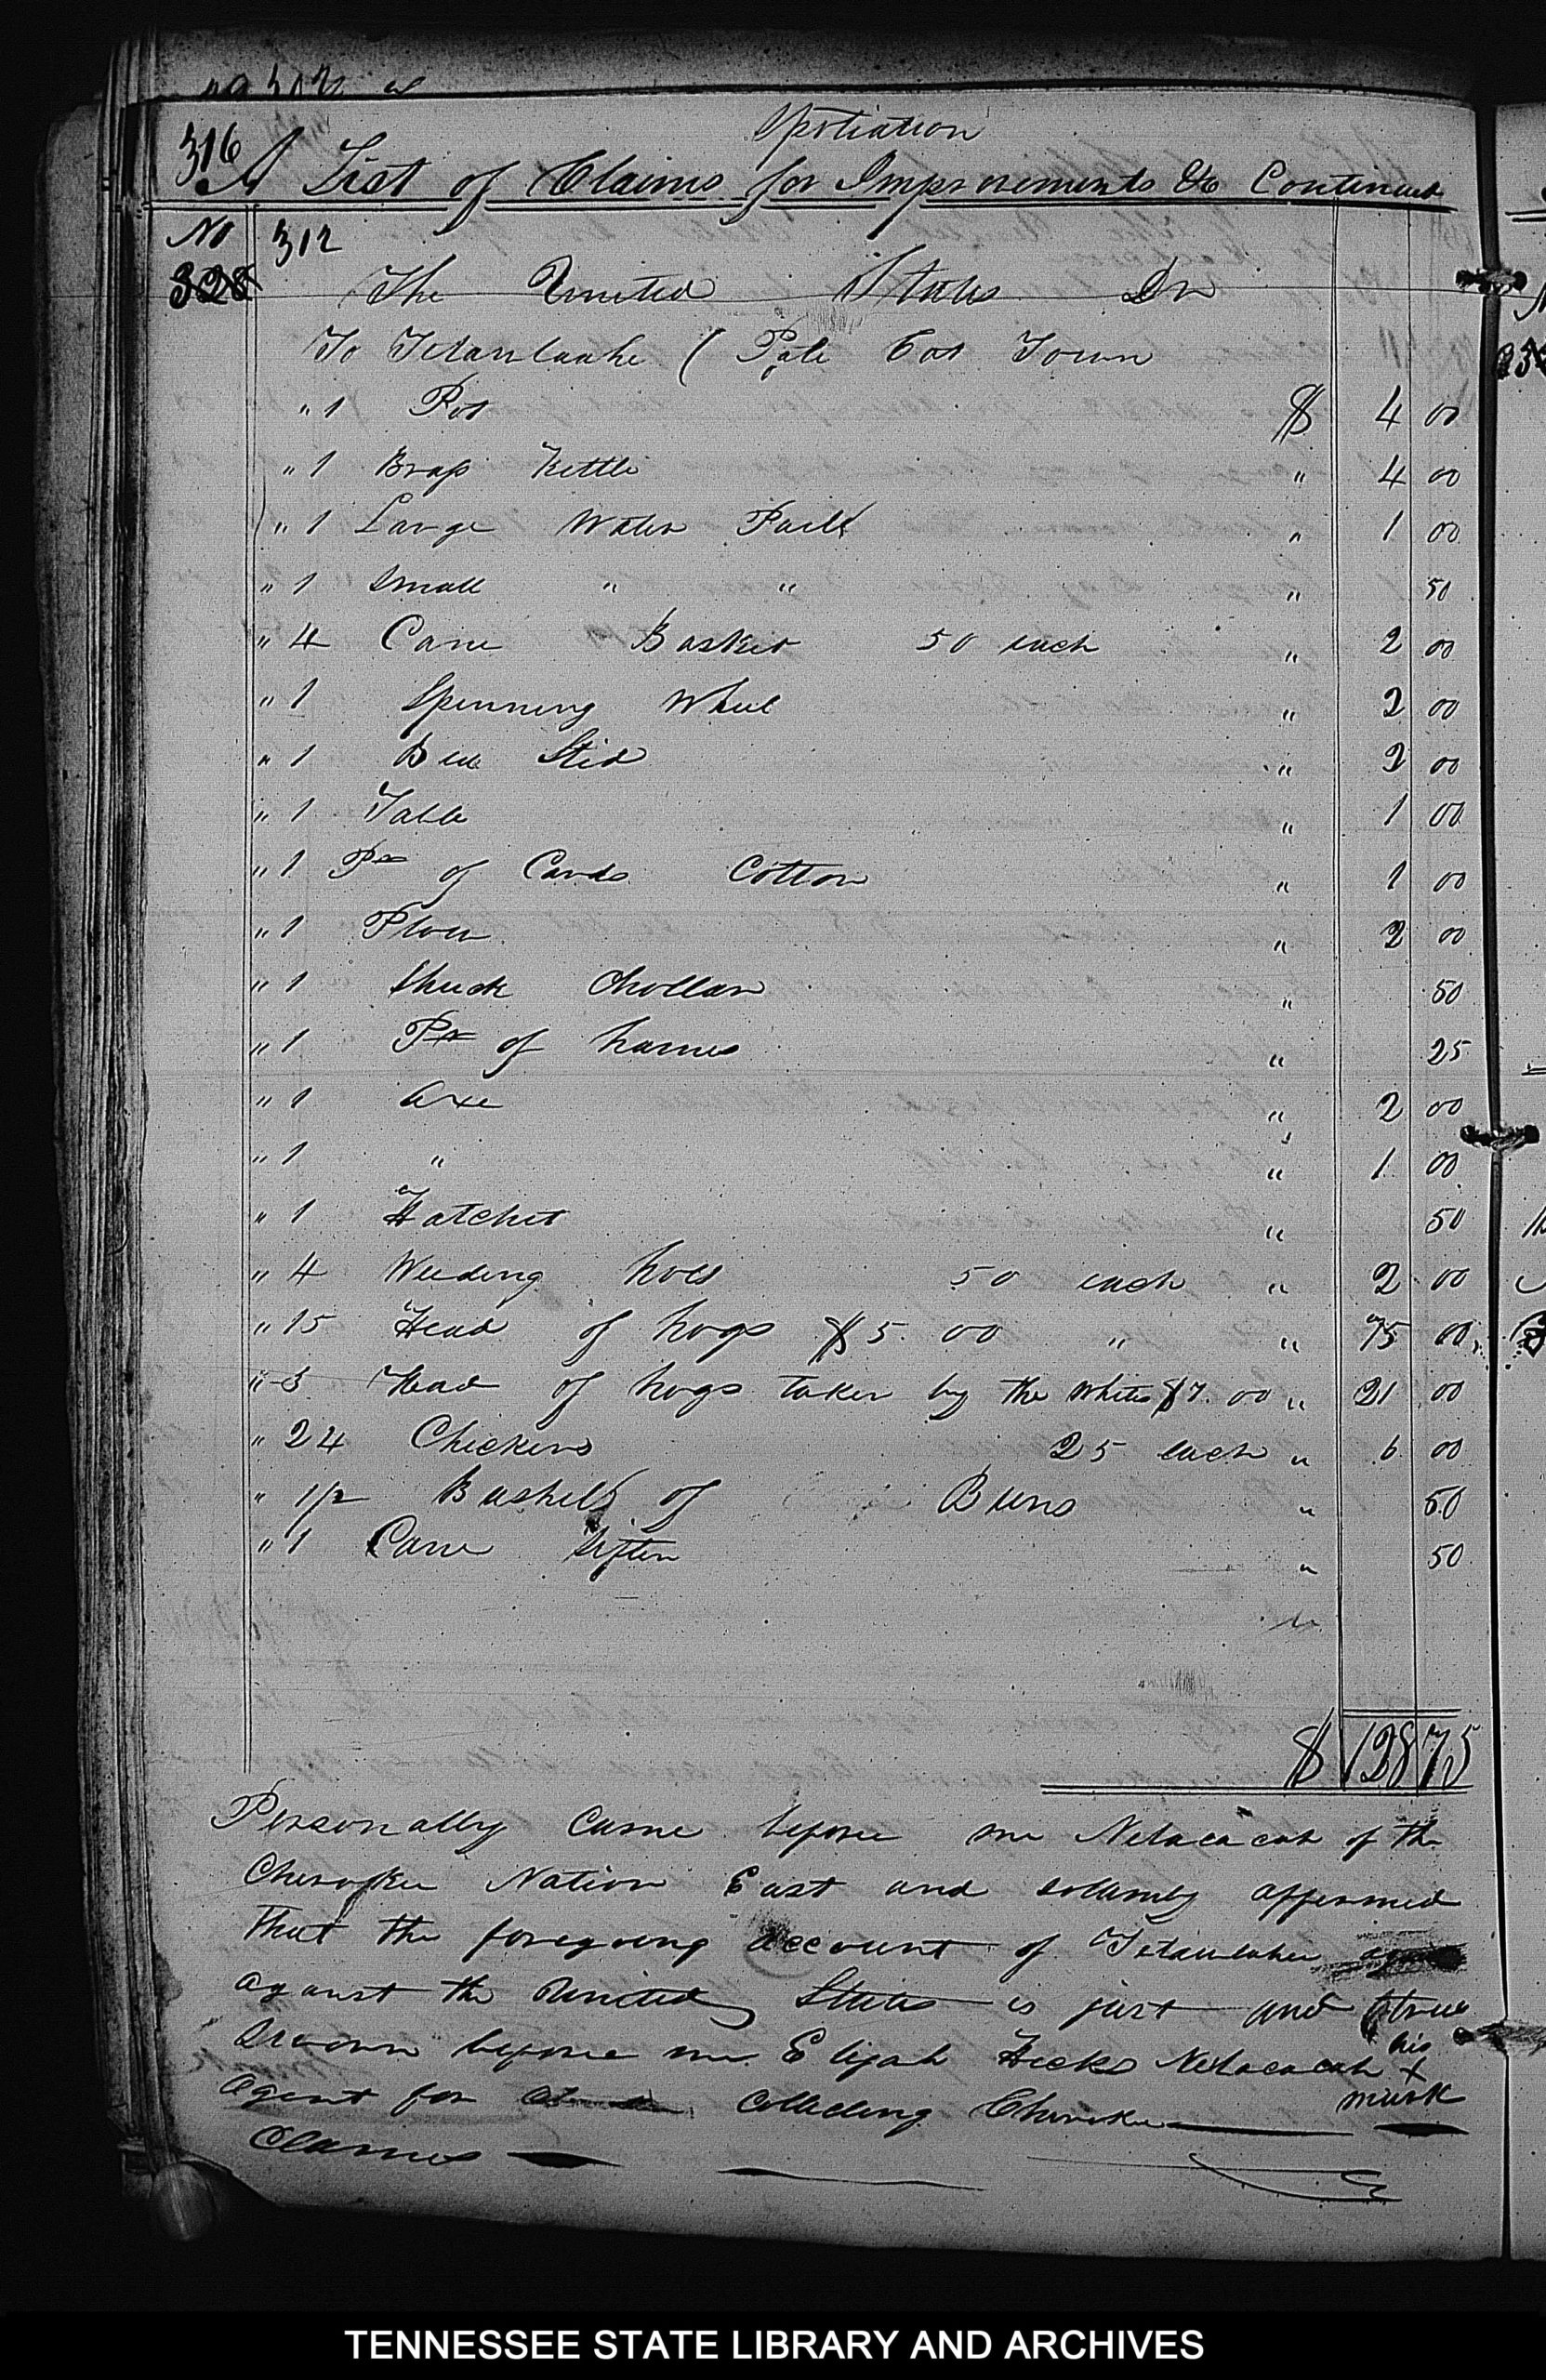 Spoliation
316
A List of Claims for Improvements &c Continued
No 312
328
The United States Dr
To Tetanlaahe ( Pole Cat Town
" 1 Pot $ 4 00
" 1 Brass Kettle " 4 00
" 1 Large Water Pails " 1 00
" 1 Small " " " 50
" 4 Cane Basket 50 each " 2 00
" 1 Spinning Wheel " 2 00
" 1 Bed Sted " 2 00
" 1 Table " 1 00
" 1 Pr of Cards Cotton " 1 00
" 1 Plow " 2 00
" 1 Shuck Chollar " 50
" 1 Pr of hames " 25
" 1 Axe " 2 00
" 1 " " 1 00
" 1 Hatchet " 50
" 4 Weeding hoes 50 each " 2 00
" 15 Head of hogs $5.00 " " 75 00
" 3 Head of hogs taken by the whites $7.00 " 21 00
" 24 Chickens 25 each " 6 00
" 1/2 Bushels of Beens " 50
" 1 Cane Sifter " 50
$ 128 75
Personally came before me Netacacah of the
Cherokee Nation East and sollemnly affermed
that the foregoing account of Tetaulahee
against the United States is just and true
Sworn before me Elijah Hicks Netacacah his x mark
Agent for Collecting Cherokee
Claimes
TENNESSEE STATE LIBRARY AND ARCHIVES